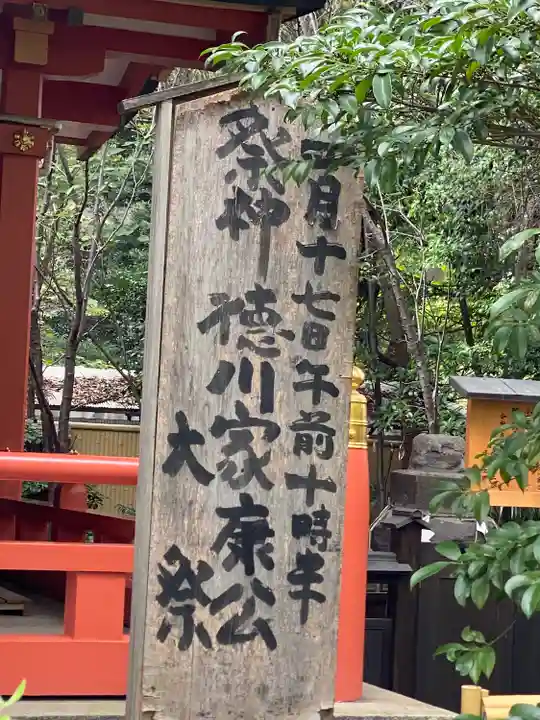 五月十七日午前十時半
祭神 徳川家康公
大祭